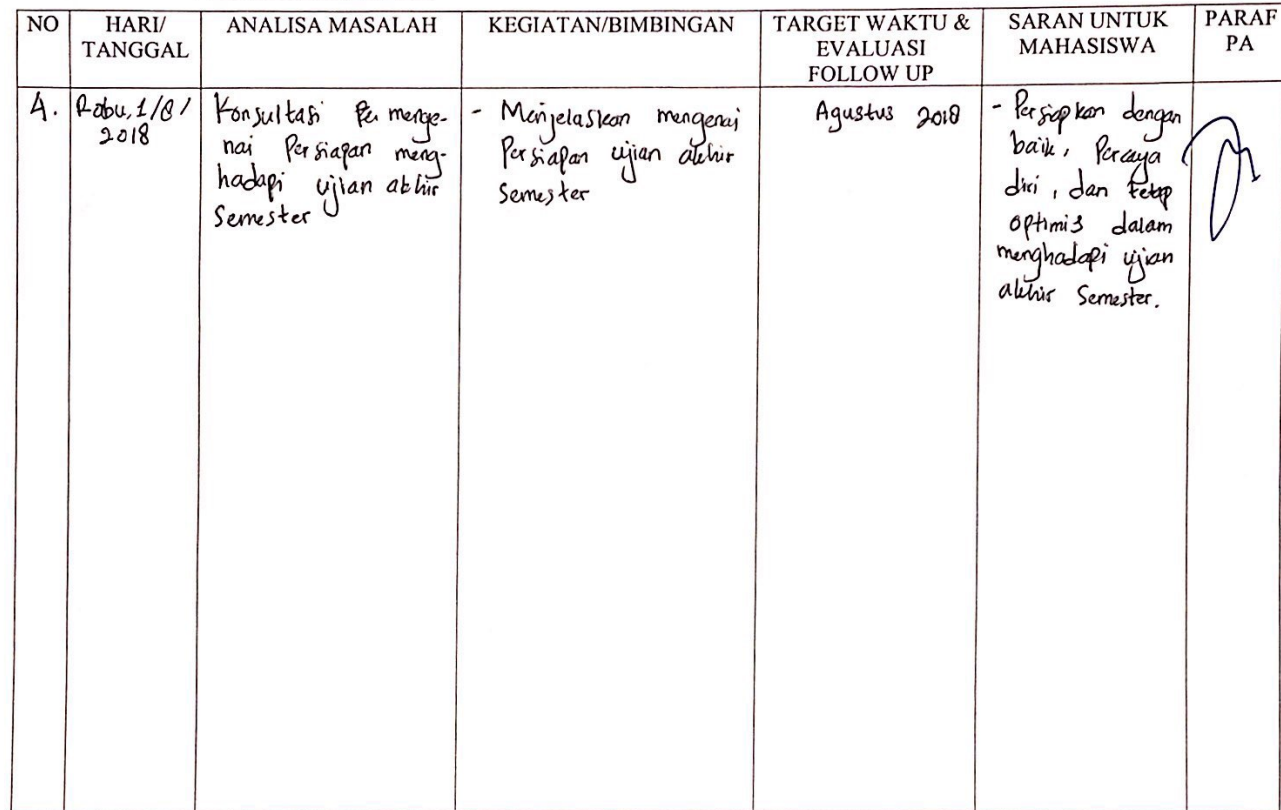 NO
HARI/
TANGGAL
ANALISA MASALAH
KEGIATAN/BIMBINGAN
TARGET WAKTU &
EVALUASI
FOLLOW UP
SARAN UNTUK
MAHASISWA
PARAF
PA
4.
Rabu, 1/8/
2018
Konsultasi Per menge-
nai Persiapan meng-
hadapi ujian akhir
Semester
- Menjelaskan mengenai
Persiapan ujian akhir
Semester
Agustus 2018
- Persiapkan dengan
baik, Percaya
diri, dan tetap
optimis dalam
menghadapi ujian
akhir Semester.